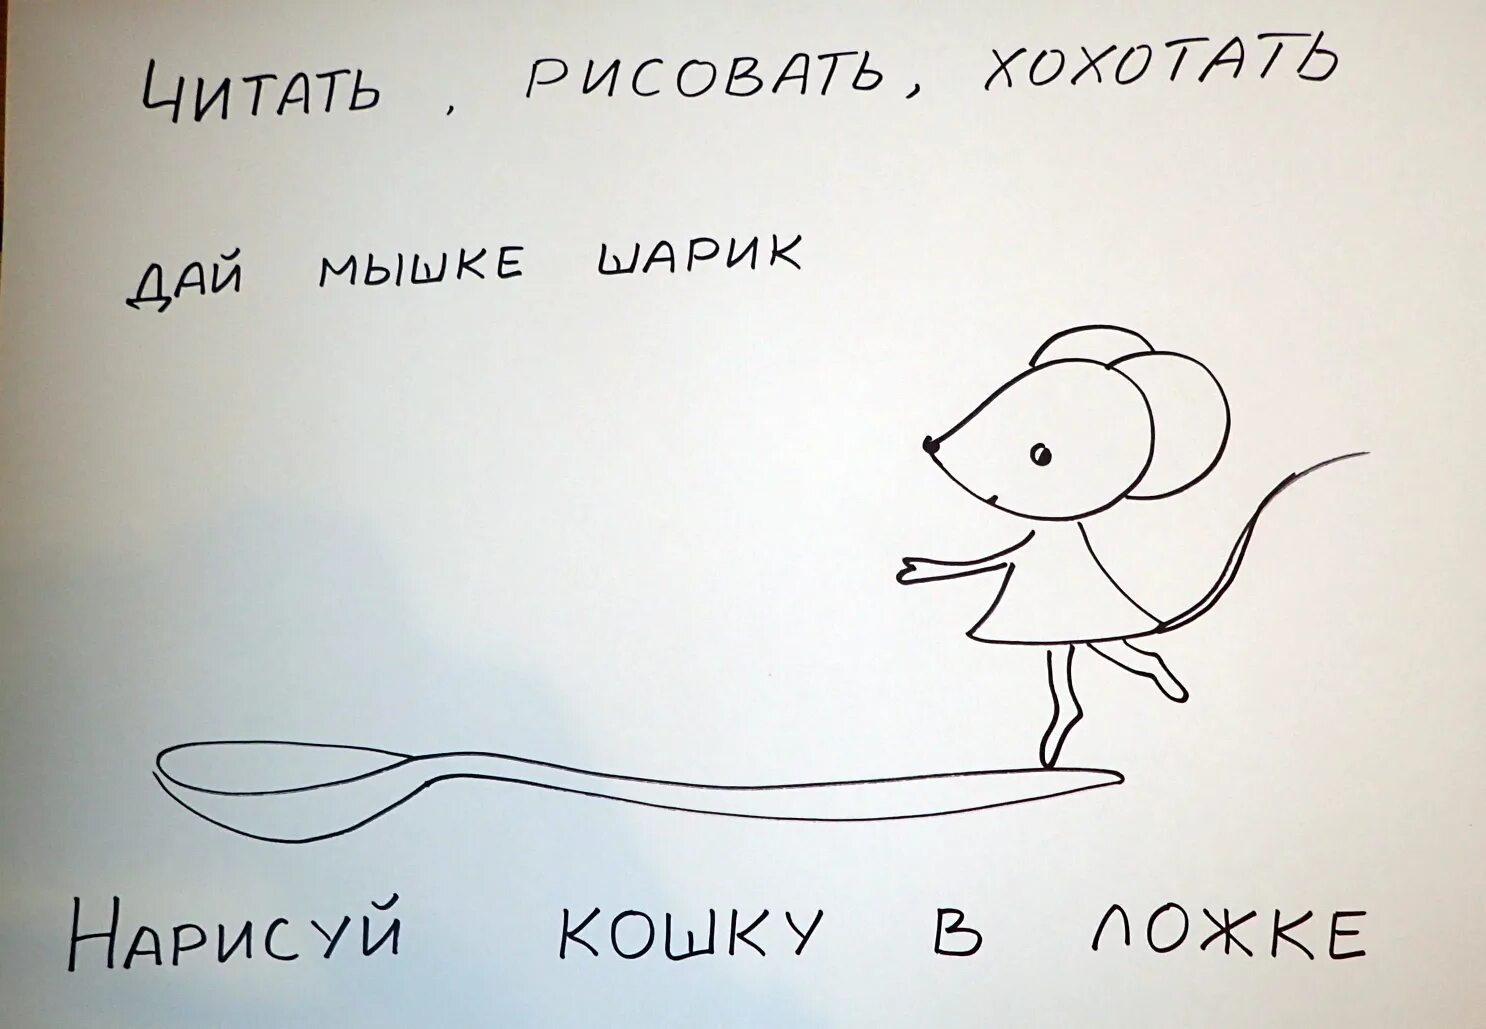 Читать, рисовать, хохотать
дай мышке шарик
Нарисуй кошку в ложке